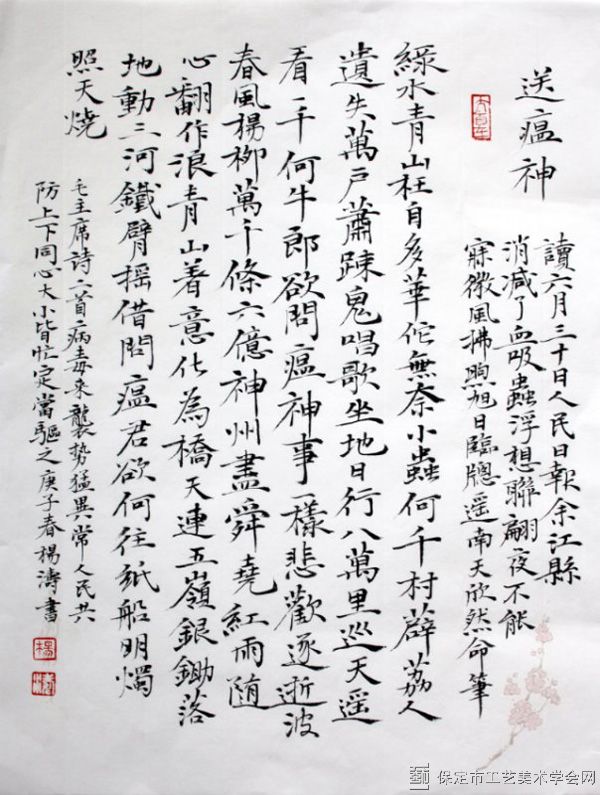 送瘟神
讀六月三十日人民日報余江縣
消滅了血吸蟲浮想聯翩夜不能
寐微風拂煦旭日臨牕遥南天欣然命筆
緑水青山枉自多華佗無奈小蟲何千村薜荔人
遺失萬戶蕭疎鬼唱歌坐地日行八萬里巡天遥
看一千河牛郎欲問瘟神事一樣悲歡逐逝波
春風楊柳萬千條六億神州盡舜堯紅雨随
心翻作浪青山着意化為橋天連五嶺銀鋤落
地動三河鐵臂摇借問瘟君欲何往紙船明燭
照天燒
毛主席詩二首病毒来襲势猛異常人民共
防上下同心大小皆忙定當驅之庚子春楊濤書
保定市工艺美术学会网